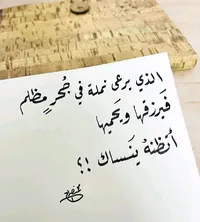 الذي يرعى نملة في جُحرٍ مظلم
فَيرزقها ويحميها
أتظنهُ ينَساك !؟